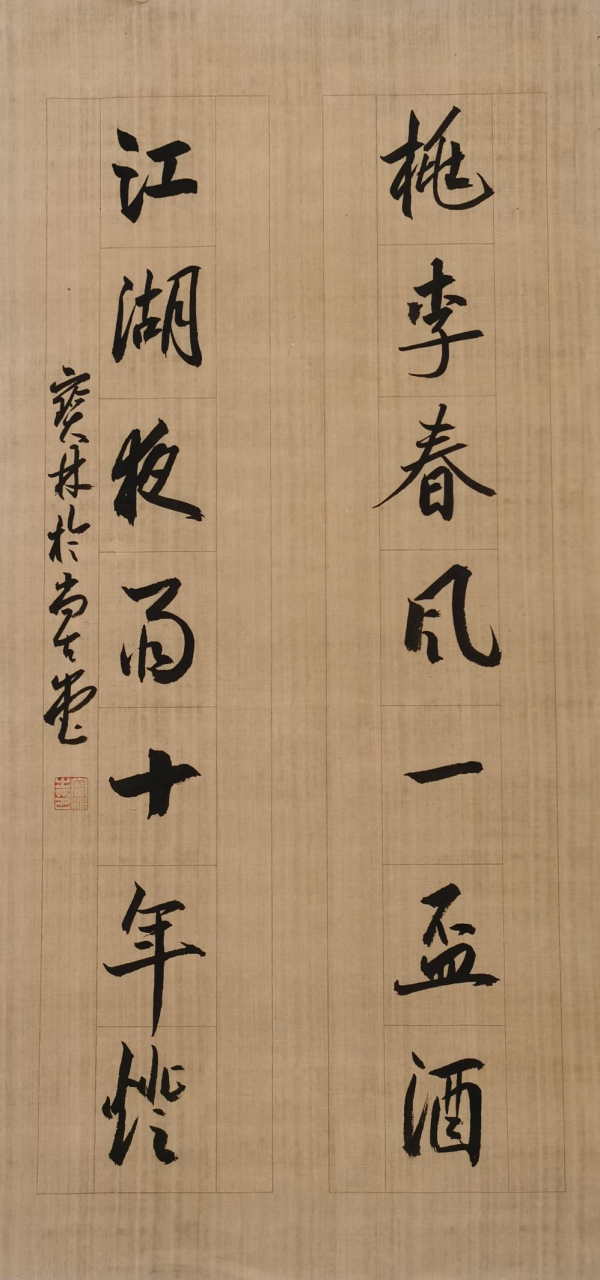 桃李春风一盃酒
江湖夜雨十年燈
寶林於尚古堂